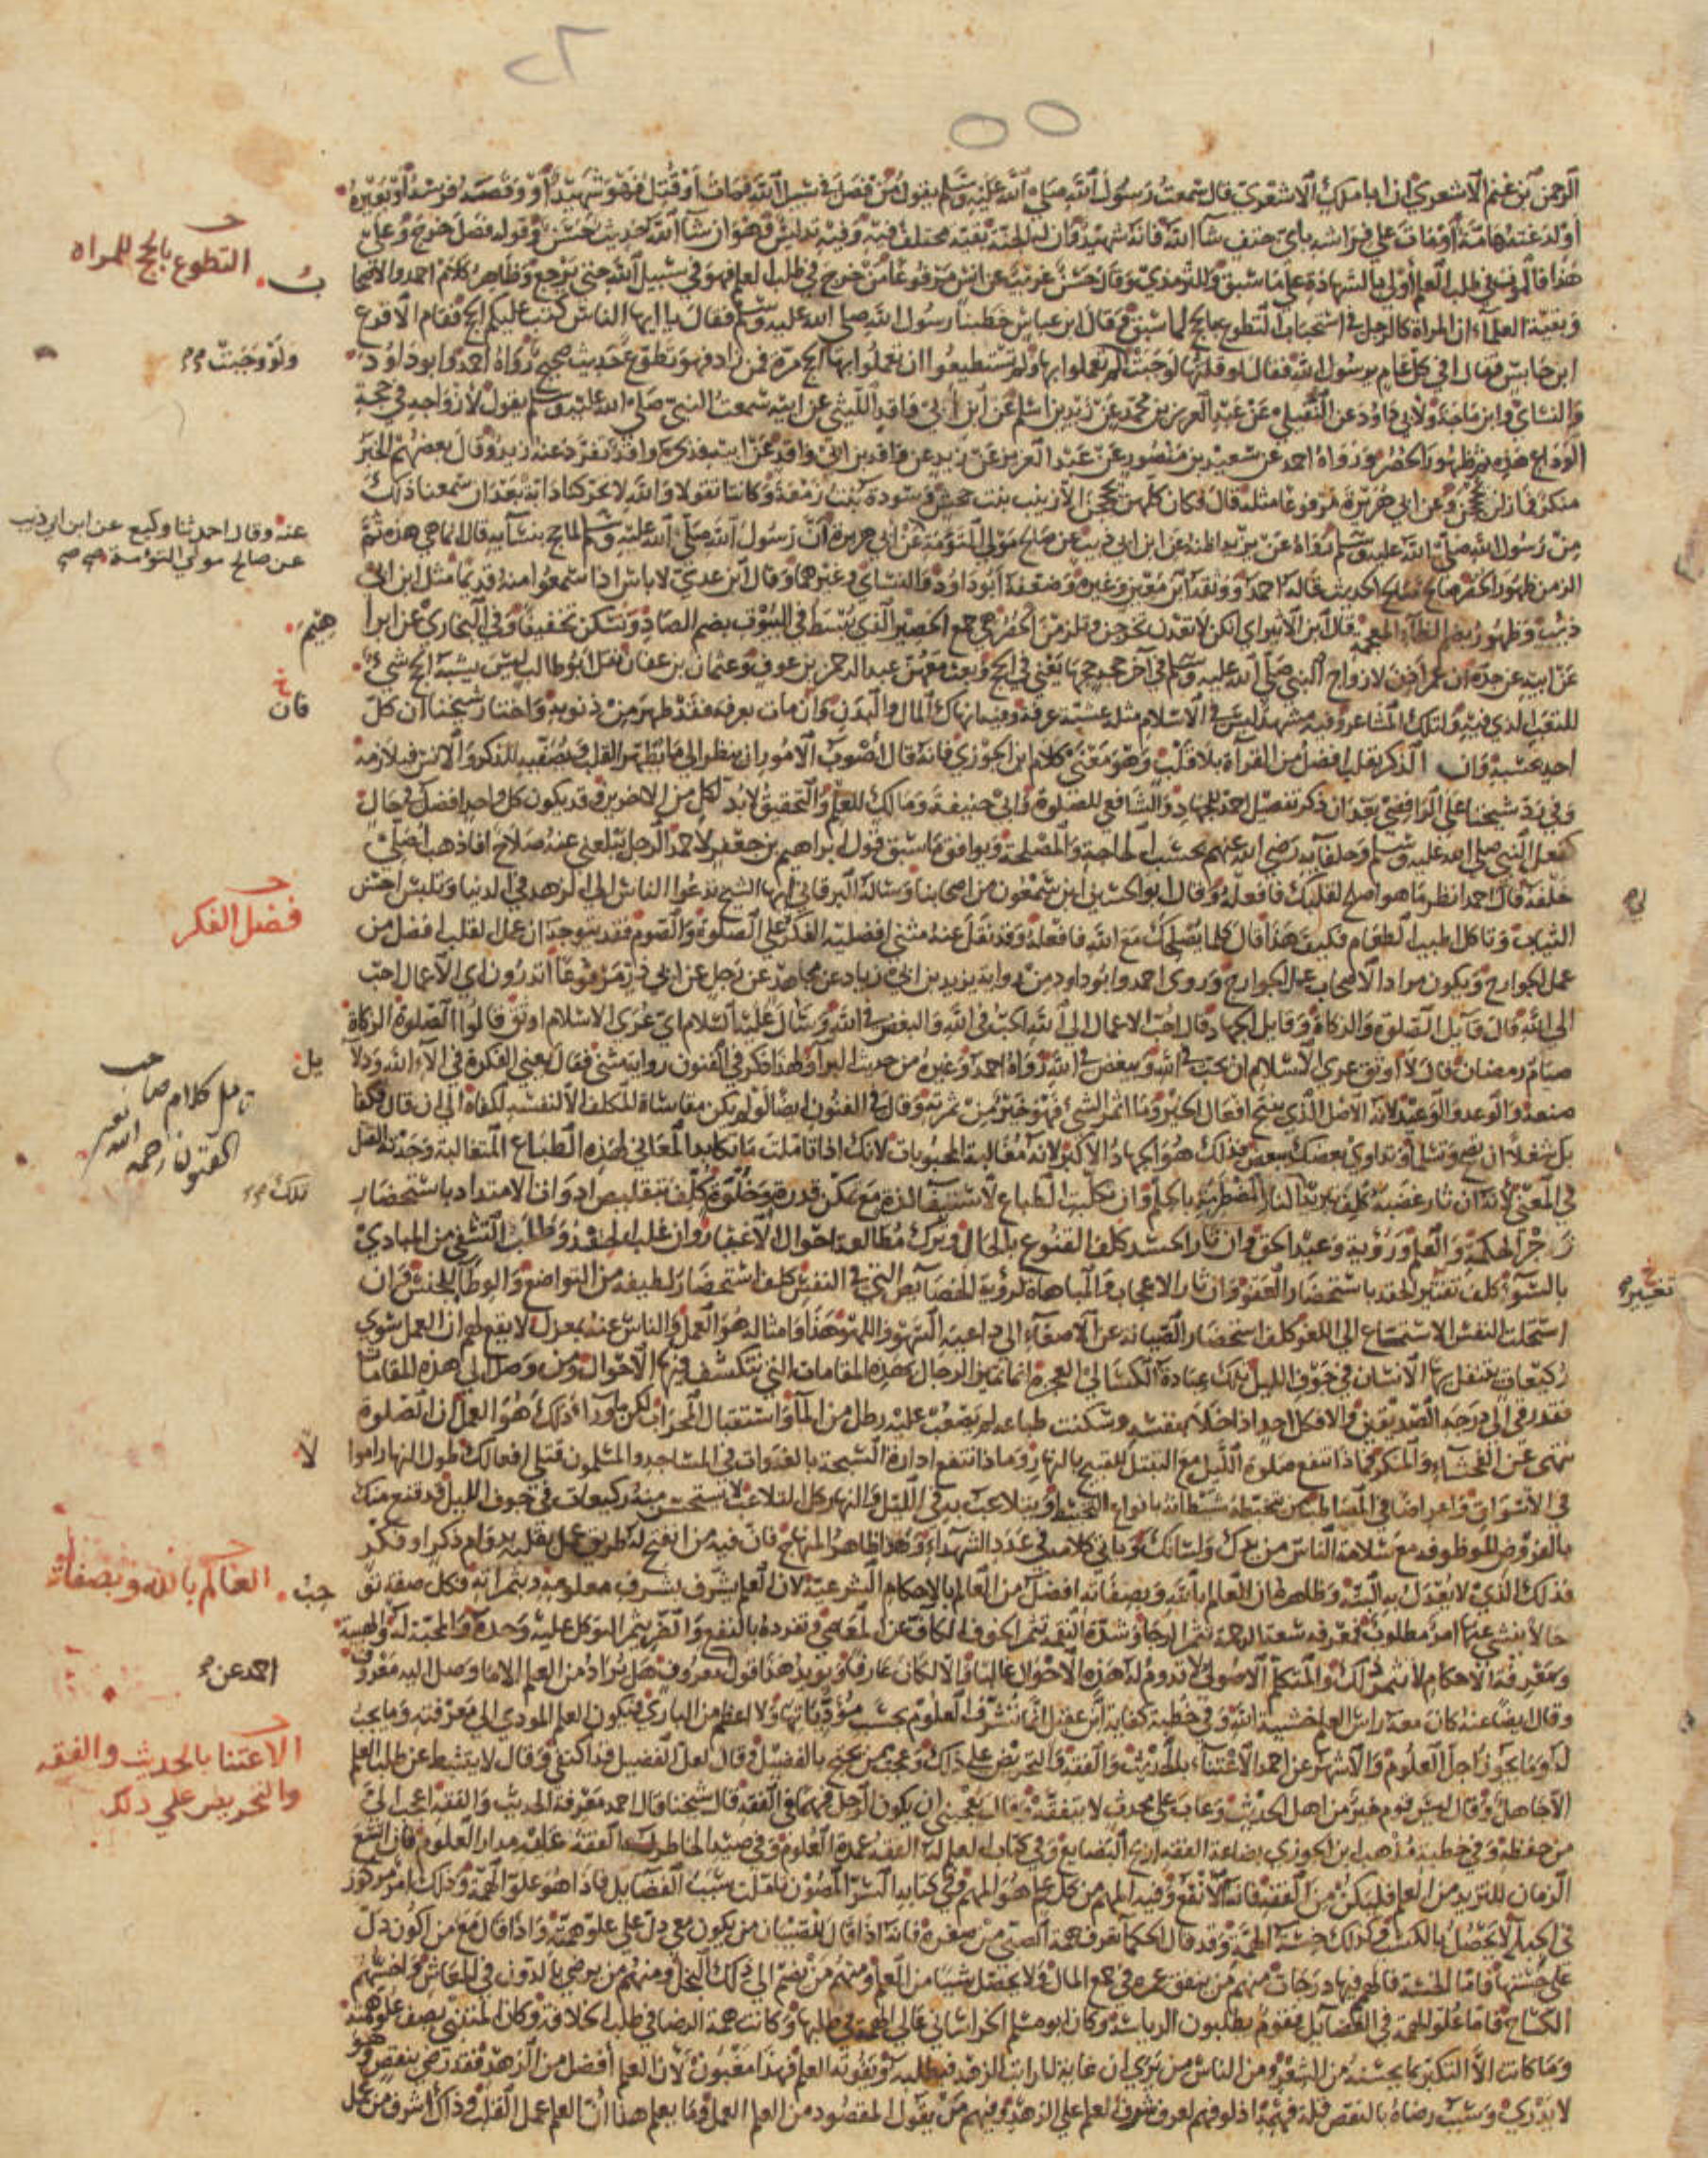 الرحمن بن غنم الاشعري ان ابا ملك الاشعري قال سمعت رسول الله صلى الله عليه وسلم يقول من فصل في سبيل الله فمات او قتل فهو شهيد او وقصه فرسه او بعيره
او لدغته هامة او مات على فراشه باي حتف شآ الله فانه شهيد وان له الجنة بقية مختلف فيه وفيه تدليس فهو ان شآ الله حديث حسن وقوله فصل خرج وعلى
هذا فالموت في طلب العلم اولى بالشهادة على ما سبق وللترمذي وقال حسن غريب عن انس مرفوعا من خرج في طلب العلم فهو في سبيل الله حتى يرجع وظاهر كلام احمد والاصحا
التطوع بالحج للمراه
ب
وبقية العلماء ان المراة كالرجل في استحباب التطوع بالحج لما سبق وقال ابن عباس خطبنا رسول الله صلى الله عليه وسلم فقال يا ايها الناس كتب عليكم الحج فقام الاقرع
ابن حابس فقال افي كل عام يرسول الله فقال لو قلتها لوجبت لم تعملوا بها ولم تستطيعوا ان تعملوا بها الحج مرة فمن زاد فهو تطوع حديث صحيح رواه احمد وابو داود
ولو وجبت
والنسائ وابن ماجه ولابي داود عن النفيلي عن عبد العزيز بن محمد عن زيد بن اسلم عن ابن ابي واقد الليثي عن ابيه سمعت النبي صلى الله عليه وسلم يقول لازواجه في حجة
الوداع هذه ثم ظهور الحصر ورواه احمد عن سعيد بن منصور عن عبد العزيز عن زيد عن واقد بن ابي واقد عن ابيه فذكره وواقد تفرد عنه زيد وقال بعضهم الخبر
منكر فما زلن يحججن وعن ابي هريرة مرفوعا مثله قال فكان كلهن يحججن الا زينب بنت جحش وسودة بنت زمعة وكانتا تقولا والله لا تحركنا دابة بعد ان سمعنا ذلك
من رسول الله صلى الله عليه وسلم رواه عن يزيد اظنه عن ابن ابي ذيب عن صالح مولى التومة عن ابي هريرة ان رسول الله صلى الله عليه وسلم لما حج بنسآيه قال انما هي هذه ثم
عنه وقال احمد ثنا وكيع عن ابن ابي ذيب
عن صالح مولي التوءمة صح صح
الزمن ظهور الحصر صالح صالح الحديث قاله احمد ووثقه ابن معين وغيره وضعفه ابو داود والنسائ وغيرهما وقال ابن عدي لا باس اذا سمعوا منه قديما مثل ابن ابي
ذيب وظهور بضم الظآء المعجمة قال ابن الاثير اي انكن لا تعدن تخرجن وتلزمن الحصر هي جمع الحصير الذي يبسط في البيوت بضم الصاد وتسكن تخفيفا وفي البخاري عن ابرا
هيم
عن ابيه عن جده ان عمر اذن لازواج النبي صلى الله عليه وسلم في آخر حجة حجها يعني في الحج وبعث معهن عبد الرحمن بن عوف وعثمان بن عفان نقل ابو طالب ليس يشبه الحج شيء
للتعب الذي فيه ولتلك المشاعر وفيه مشهد ليس في الاسلام مثله عشية عرفة وفيه انهاك المال والبدن وان مات بعرفة فقد طهر من ذنوبه واختار شيخنا ان كل
خ
فان
احد بحسبه وان الذكر بقلب افضل من القرآة بلا قلب وهو معنى كلام ابن الجوزي فانه قال اصوب الامور ان ينظر الى ما يطهر القلب ويصفيه للذكر والانس فيلازمه
وفي رد شيخنا على الرافضي بعد ان ذكر تفضيل احمد للجهاد والشافعي للصلوة وابي حنيفة ومالك للعلم والتحقيق لا بد لكل من الاخرين وقد يكون كل واحد افضل في حال
كفعل النبي صلى الله عليه وسلم وخلفآيه رضي الله عنهم بحسب الحاجة والمصلحة ويوافق ما سبق قول ابراهيم بن جعفر لاحمد الرجل يبلغني عنه صلاح افاذهب اصلي
خلفه قال احمد انظر ما هو اصلح لقلبك فافعله وقال ابو الحسين ابن سمعون من اصحابنا وساله البرقاني ايها الشيخ تدعوا الناس الى الزهد في الدنيا وتلبس احسن
الثياب وتاكل اطيب الطعام فكيف هذا فقال كلما يصلحك مع الله فافعله وقد نقل عنه مثنى افضلية الفكر على الصلوة والصوم فقد يتوجه ان عمل القلب افضل من
فضل الفكر
عمل الجوارح ويكون مراد الاصحاب عمل الجوارح وروى احمد وابو داود من رواية يزيد بن ابي زياد عن مجاهد عن رجل عن ابي ذر مرفوعا اتدرون اي الاعمال احب
الى الله قال قآيل الصلوة والزكاة وقايل الجهاد قال احب الاعمال الى الله الحب في الله والبغض في الله وسال عليه السلام اي عرى الاسلام اوثق قالوا الصلوة الزكاة
صيام رمضان قال لا اوثق عرى الاسلام ان تحب في الله وتبغض في الله رواه احمد وغيره من حديث البرآء ولهذا ذكر في الفنون رواية مثنى فقال يعني الفكرة في الآء الله ودلا
يل
تامل كلام صاحب
الفنون رحمه الله
صنعه والوعد والوعيد لانه الاصل الذي ينتج افعال الخير وما اثمر الشيء فهو خير من ثمرته وقال في الفنون ايضا لو لم يكن مقاساة المكلف الا لنفسه لكفاه الى ان قال فكفا
بك شغلا ان تصح وتسلم وتداوي بعضك ببعض فذلك هو الجهاد الاكبر لانه مغالبة المحبوبات لانك اذا تاملت ما يكابد المعاني لهذه الطباع المتغالبة وجدته القتل
في المعنى لانه ان ثار غضبه كلف بتبريد النار المضطرمة بالحلم وان تكلبت الطباع لاستيفآ لذة مع تمكن قدرة وخلوة كلف بتقليص ادوات الامتداد باستحضار
تلك
زجر الحكمة والعلم ورؤية وعيد الحق وان ثار الحسد كلف القنوع بالحال وترك مطالعة احوال الاغيار وان غلب الحقد وطلب التشفي من المبادي
بالسوء كلف تغيير الحقد باستحضار العفو وان ثار الاعجاب والمباهاة لرؤية الخصايص التي في النفس كلف استحضار لطيفة من التواضع والوطآ للجنس وان
تغيير
استحلت النفس الاستمتاع الى اللغو كلف استحضار الصيانة عن الاصغآء الى داعية الشهو واللهو هذا وامثاله هو العمل والناس عنه بمعزل لا يقع لهم ان العمل سوى
ركيعات يتنفل بها الانسان في جوف الليل تلك عبادة الكسالى العجزة انما تمايز الرجال بهذه المقامات التي تنكشف فيها الاحوال ومن وصل الى هذه المقامات
فقد رقي الى درجة الصديقين والا فكل احد اذا خلا بنفسه وسكنت طباعه لم يصعب عليه رطل من المآ واستقبال المحراب لكن ما وراء ذلك هو العمل ان الصلوة
تنهى عن الفحشآء والمنكر فماذا تنفع صلوة الليل مع التبتل للقبيح بالنهار وماذا تنفع ادارة السبحة بالغدوات في المساجد والمسلمون قتلى افعالك طول النهار اموا
لا
في الاسواق واعراضا في المصاطب من تخبطه شيطانه بانواع التخبط ويتلاعب به في الليل والنهار كل التلاعب لا يستحسن منه ركيعات في جوف الليل قد قنع منك
بالفروض الموظوفة مع سلامة الناس من يدك ولسانك وياتي كلامه في عدد الشهداء وهذا ظاهر المنهاج فان فيه من انفتح له طريق عمل بقلبه بدوام ذكر او فكر
فذلك الذي لا يعدل به البتة وظاهره ان العالم بالله وبصفاته افضل من العالم بالاحكام الشرعية لان العلم يشرف بشرف معلومه وبثمراته فكل صفة تو
جب
العالم بالله وبصفاته
حالا ينشي عنها امر مطلوب فمعرفة سعة الرحمة تثمر الرجا وشدة النقمة تثمر الخوف الكاف عن المعاصي وتفرده بالنفع والضر يثمر التوكل عليه وحده والمحبة له والهيبة
ومعرفة الاحكام لا يثمر ذلك والمتكلم الاصولي لا تدوم له هذه الاحوال غالبا والا لكان عارفا ويويد هذا قول معروف هل يراد من العلم الا ما وصل اليه معروف
احمد عن
وقال ايضا عنه كان معه راس العلم خشية الله وفي خطبة كفاية ابن عقيل انما تشرف العلوم بحسب مؤدياتها ولا اعظم من الباري فيكون العلم المودي الى معرفته وما يجب
له وما يجوز اجل العلوم والاشهر عن احمد الاعتناء بالحديث والفقه والتحريض على ذلك وعجب ممن يحتج بالفضيل وقال لعل الفضيل قد اكتفى وقال لا يتثبط عن طلب العلم
الاعتنا بالحديث والفقه
والتحريض علي ذلك
الا جاهل وقال ليس قوم خير من اهل الحديث وعاب على محدث لا يتفقه وقال يعجبني ان يكون الرجل فهما في الفقه قال شيخنا قال احمد معرفة الحديث والفقه اعجب الي
من حفظه وفي خطبة مذهب ابن الجوزي بضاعة الفقه اربح البضايع وفي كتاب العلم له الفقه عمدة العلوم وفي صيد الخاطر له الفقه عليه مدار العلوم فان اتسع
الزمان للتزيد من العلم فليكن من الفقه فانه الانفع وفيه المهم من كل علم هو المهم وفي كتابه السر المصون تاملت سبب الفضايل فاذا هو علو الهمة وذلك امر مركوز
في الجبلة لا يحصل بالكسب وكذلك خسة الهمة وقد قال الحكمآ تعرف همة الصبي من صغره فانه اذا قال للصبيان من يكون معي دل على علو همته واذا قال مع من اكون دل
على خستها فاما الخسة فالهم فيها درجات منهم من ينفق عمره في جمع المال ولا يحصل شيئا من العلم ومنهم من يضم الى ذلك البخل ومنهم من يرضى بالدون في المعاش واخسهم
الكساح فاما علو الهمة في الفضآيل فقوم يطلبون الرياسة وكان ابو مسلم الخراساني عالي الهمة في طلبها وكانت همة الرضا في طلب الخلافة وكان المتنبي يصف علو همته
وما كانت الا التكبر بما يحسنه من الشعر ومن الناس من يرى ان غاية المراتب الزهد فيطلبه ويفوته العلم فهذا مغبون لان العلم افضل من الزهد فقد رضي بنقص وهو
لا يدري وسبب رضاه بالنقص قلة فهمه اذ لو فهم لعرف شرف العلم على الزهد ومنهم من يقول المقصود من العلم العمل وما يعلم هذا ان العلم عمل القلب وذاك اشرف من عمل